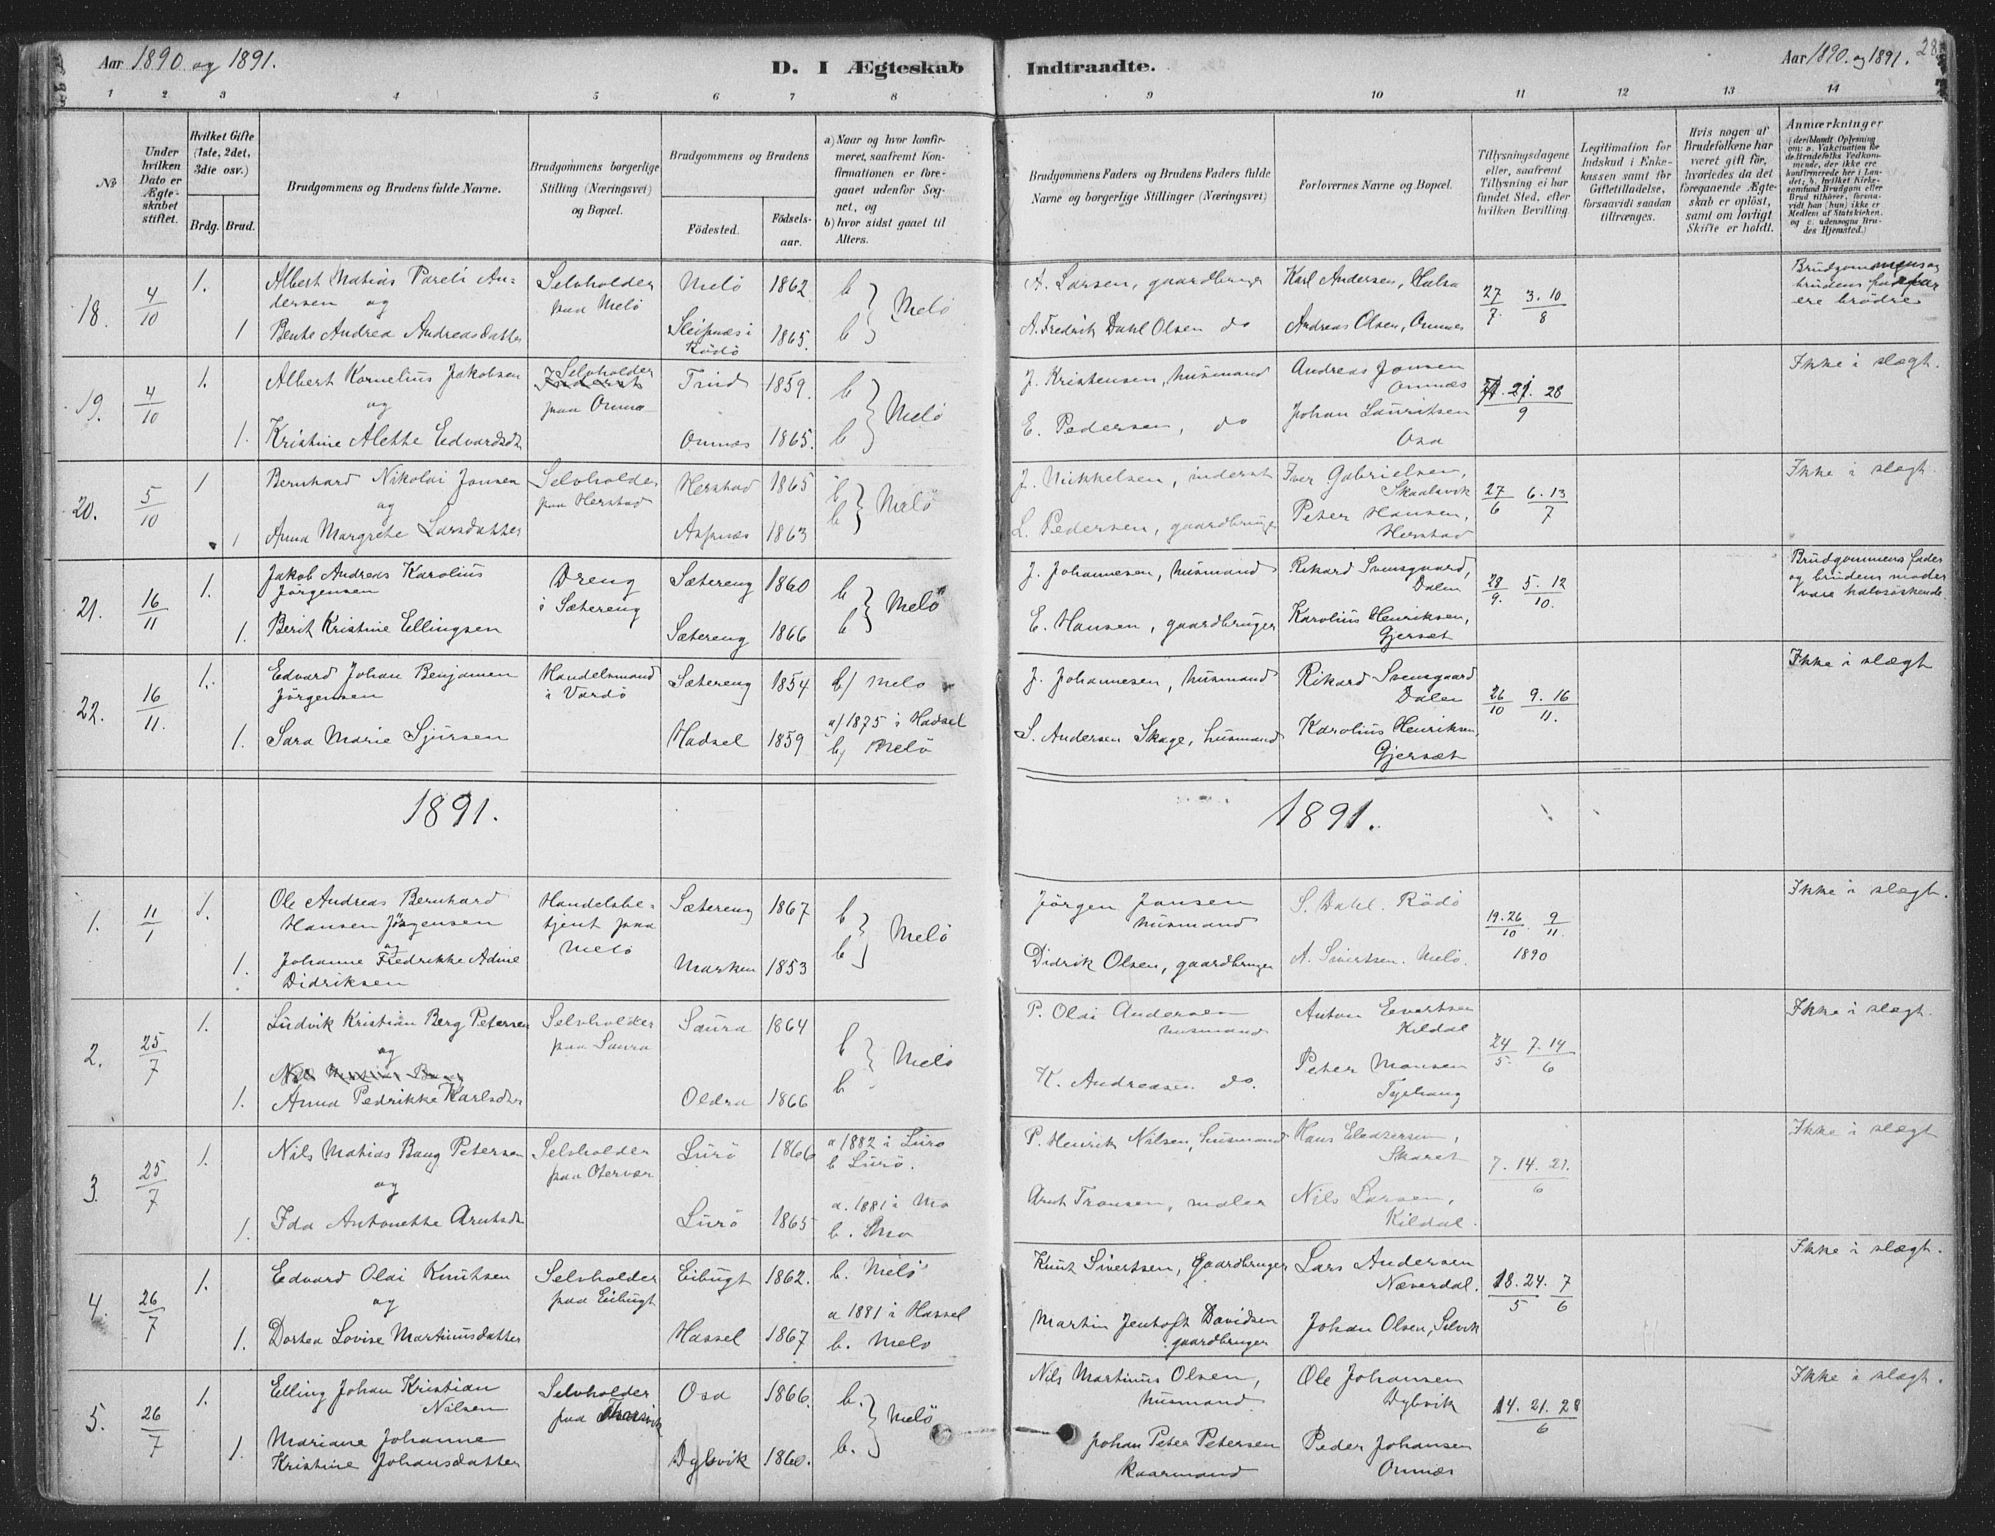 Aar 1890 og 1891.
D. I Ægteskab Indtraadte.
Aar 1890. og 1891.
28
1 2 3 4 5 6 7 8 9 10 11 12 13 14
No
Under hvilken Dato er Ægteskabet stiftet.
Hvilket Gifte (1ste, 2det, 3die osv.)
Brdg. Brud.
Brudgommens og Brudens fulde Navne.
Brudgommens borgerlige Stilling (Næringsvei) og Bopæl.
Brudgommens og Brudens
Fødested.
Fødselsaar.
a) Naar og hvor konfirmeret, saafremt Konfirmationen er foregaaet udenfor Sognet, og
b) hvor sidst gaaet til Alters.
Brudgommens Faders og Brudens Faders fulde Navne og borgerlige Stillinger (Næringsvei)
Forlovernes Navne og Bopæl.
Tillysningsdagene eller, saafremt Tillysning ei har fundet Sted, efter hvilken Bevilling.
Legitimation for Indskud i Enkekassen samt for Giftetilladelse, forsaavidt saadan tiltrænges.
Hvis nogen af Brudefolkene har været gift før, hvorledes da det foregaaende Ægteskab er opløst, samt om lovligt Skifte er holdt.
Anmærkninger
(deriblandt Oplysning om: a. Vakcination for de Brudefolks Vedkommende, der ikke ere konfirmerede her i Landet; b. hvilket Kirkesamfund Brudgom eller Brud tilhører, forsaavidt han (hun) ikke er Medlem af Statskirken, og c. udensogns Brudes Hjemsted.)
18. 4/10 1. Albert Matias Pareli Andersen og
Selvholder paa Melö
Melö 1862 b
1 Bente Andrea Andreasdatter
Sleipnes i Rödö 1865. b } Melö
A. Larsen, gaardbruger
A. Fredrik Dahl Olsen do
Karl Andersen, Halsa
Andreas Olsen, Onnes
27/7 3. 10/8
Brudgommens og brudens
ere brödre
19. 4/10 1. Albert Kornelius Jakobsen
og
Selvholder
paa Onnæ
1859. b
1. Kristine Alette Edvardsdt
Onnæs 1865. b } Melö
J. Kristensen, husmand
E. Pedersen, do
Andreas Jonsen
Onnæs
Johan Lauritsen
Osa
21. 28/9
Ikke i slægt.
20. 5/10 1 Bernhard Nikolai Jonsen
og
Selvholder
paa Herstad
Herstad 1865 b
1 Anna Margrete Larsdatter
1863 b } Melö
J. Mikkelsen, inderst
L. Pedersen, gaardbruger
Iver Gabrielsen,
Skaalsvik
Peter Hansen,
Herstad
27/6 6. 13/7
Ikke i slægt.
21. 16/11 1. Jakob Andreas Karolius
Jörgensen
Dreng
i Sætereng
Sætereng 1860 b
1. Berit Kristine Ellingsen
Sætereng 1866 b } Melö
J. Johannesen, husmand
E. Hansen, gaardbruger
Rikard Svensgaard,
Dalen
Karolius Henriksen,
Gjersæt
28/9. 5. 12/10.
Brudgommens fader
og brudens moder
vare halvsöskende.
22. 16/11. 1. Edvard Johan Benjamen
Jörgensen
Handelsmand
i Vardö
Sætereng 1854 b/ Melö
1. Sara Marie Sjursen
Hadsel 1859 a/ 1875 i Hadsel
b/ Melö
J. Johannesen, husmand
S. Andersen Skage, husmand
Rikard Svensgaard
Dalen
Karolius Henriksen,
Gjersæt
26/10 9. 16/11.
Ikke i slægt
1891.
1891.
1. 11/1 1. Ole Andreas Bernhard
Hansen Jörgensen
og
Handelsbetjent paa
Melö
Sætereng 1867 b
1. Johanne Fredrikke Adine
Didriksen
Marken 1853 b } Melö
Jörgen Jansen
husmand
Didrik Olsen, gaardbruger
S. Dahl. Rödö
A. Sivertsen. Melö.
19. 26/10 9/11.
1890
Ikke i slægt.
2. 25/7 1. Ludvik Kristian Berg Petersen
og
Selvholder
paa Saura
Saura 1864 b
1. Anna Pedrikke Karlsdter
Oldra 1866 b } Melö
P. Olai Andersen
husmand
K. Andreasen do.
Anton Evertsen
Kildal
Peter Monsen
24/5. 7. 14/6
Ikke i slægt.
3. 25/7 1. Nils Matias Bang Petersen
og
Selvholder
paa Otervær
Lurö 1866 a 1882 i Lurö
b Lurö.
1. Ida Antonette Arntsdt
Lurö 1865 a. 1881 i Mo
b. Mo
P. Henrik Nilsen, husmand
Arnt Transen, maler
Hans Eleasersen,
Skaret
Nils Larsen,
Kildal.
7. 14. 21./6
Ikke i slægt
4. 26/7 1. Edvard Olai Knutsen
og
Selvholder
paa Eibugt
Eibugt 1862. b. Melö
1. Dortea Lovise Martinusdatter
Hassel 1867 a 1881 i Hassel
b. Melö
Knut Sivertsen, Gaardbruger
Martin Jentoft Davidsen
gaardbruger
Lars Andersen
Næverdal.
Johan Olsen, Selvik
18. 24./5 7/6
Ikke i slægt.
5. 26/7 1. Elling Johan Kristian
Nilsen
Selvholder
paa
Osa 1866. b.
1 Mariane Johanne
Kristine Johansdatter
Dybvik 1860. b. } Melö
Nils Martinus Olsen,
husmand.
Johan Peter Petersen
kaarmand
Ole Johansen
Dybvik
Peder Johansen
Onnæs
14. 21. 28/6
Ikke i slægt.